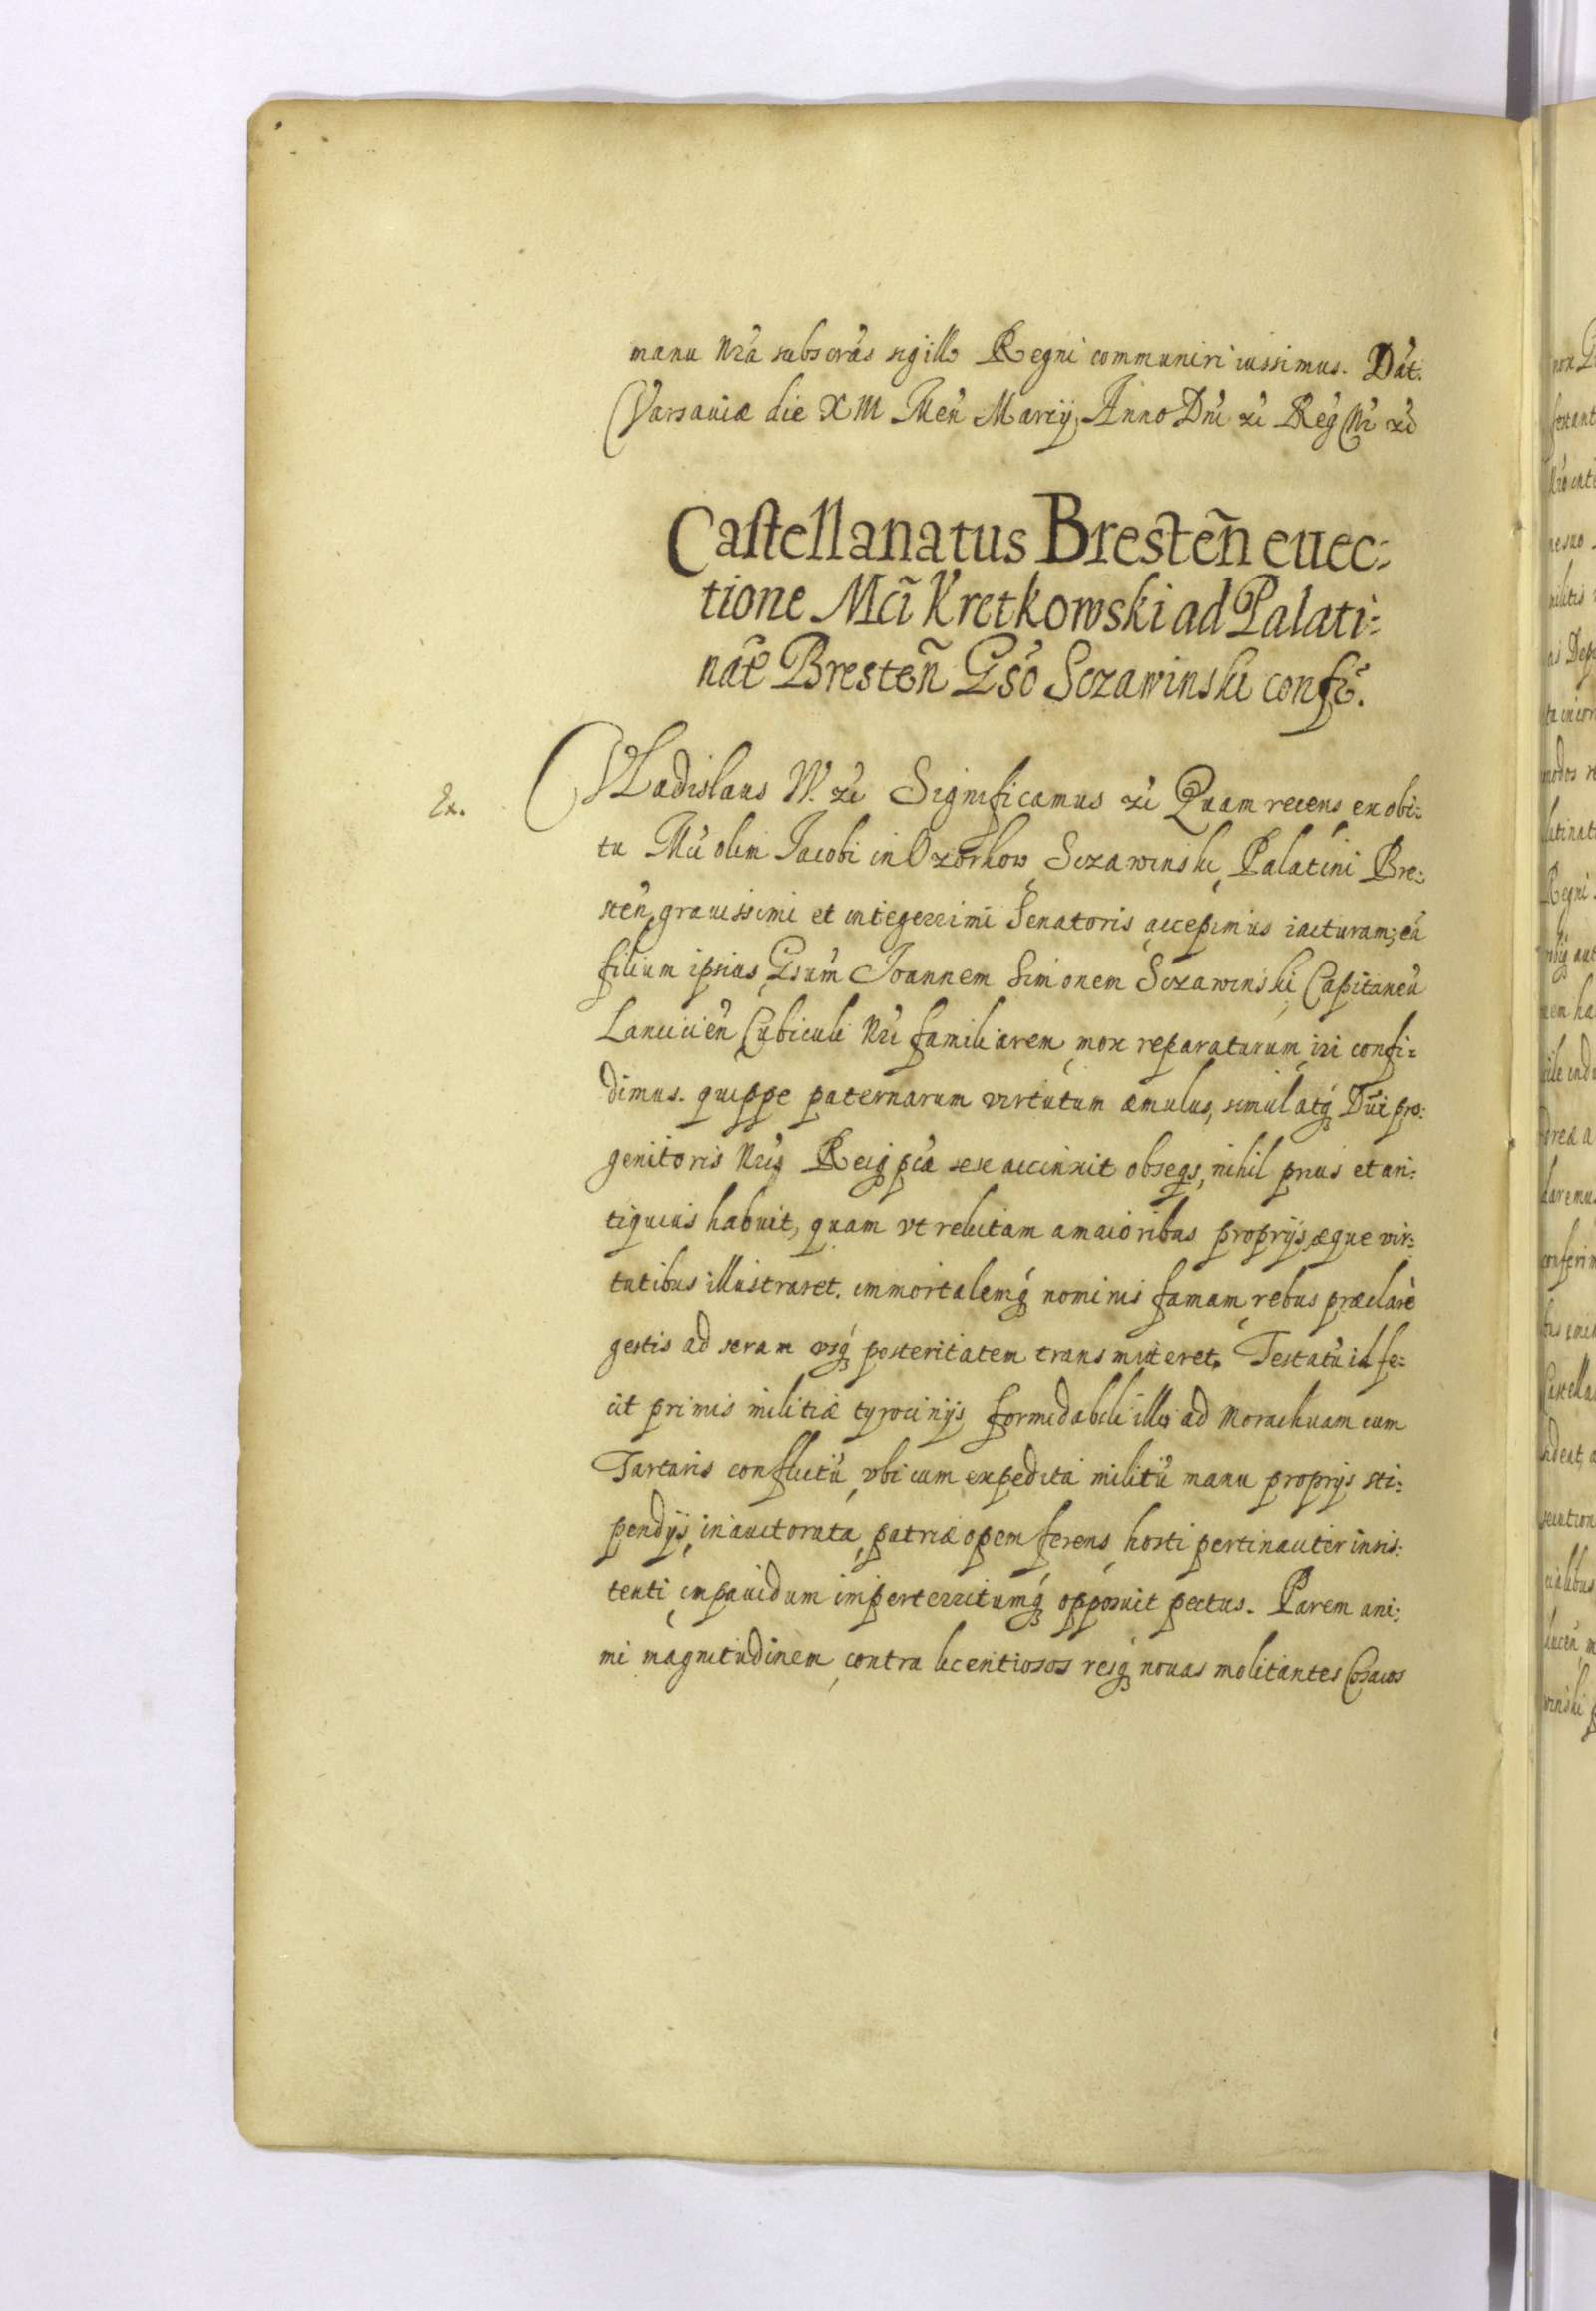 manu Nrã subscras sigillo Regni communiri iussimus. Dat.
Varsaviæ die XIII Men Marty Anno Dni zc Reg Nr zc
Castellanatus Bresteñ euec:
tione Mci Kretkowski ad Palati:
nate Bresteñ Gso Sczawinski confr.
Ex.
Vladislaus IV. zc Significamus zc Quam recens ex obi:
tu Mci olim Iacobi in Ozorkow Sczawinski Palatini Bre:
sten, grauissimi et integerrimi Senatoris accepimus iacturam; eã
filium ipsius Gsum Ioannem Simonem Sczawinski Capitaneũ
Lanciciẽn Cubiculi Nri familiarem mox reparaturum iri confi:
dimus. quippe paternarum virtutum æmulus, simul atq Diui pro:
genitoris Nriq Reiq pca sese accinxit obseqs, nihil prius et an:
tiquius habuit, quam vt relictam a maioribus proprijs æque vir:
tutibus illustraret. immortalemq nominis famam rebus præclarè
gestis ad seram vsq posteritatem transmitteret. Testatũ id fe:
cit primis militiæ tyrocinijs formidabili illo ad Morachuam cum
Tartaris conflictũ vbi cum expedita militũ manu proprijs sti:
pendijs inauctorata patriæ opem ferens hosti pertinaciter insis:
tenti impauidum imperterritumq opposuit pectus. Parem ani:
mi magnitudinem contra licentiosos resq nouas molitantes Cosacos